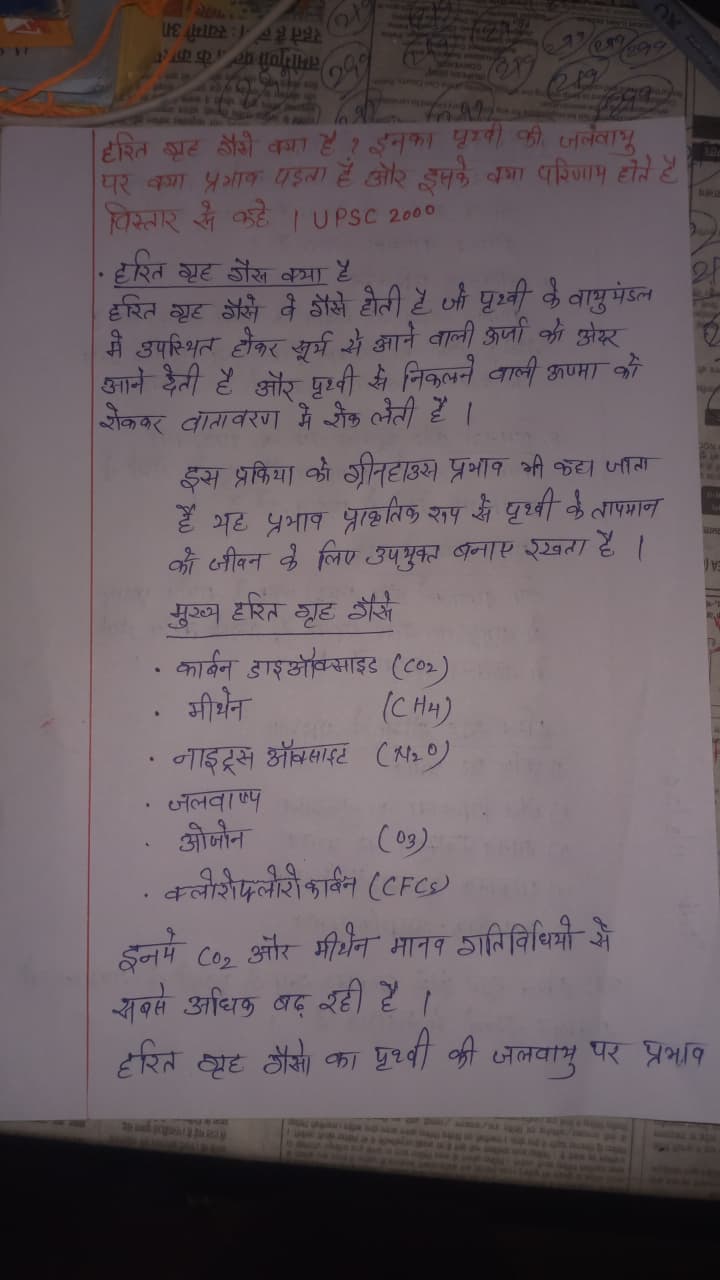 हरित गृह गैसे क्या है ? इनका पृथ्वी की जलवायु
पर क्या प्रभाव पड़ता है और इसके क्या परिणाम होते है
विस्तार से कहे । UPSC 2000
• हरित गृह गैस क्या है
हरित गृह गैसे वे गैसे होती है जो पृथ्वी के वायुमंडल
मे उपस्थित होकर सूर्य से आने वाली ऊर्जा को अंदर
आने देती है और पृथ्वी से निकलने वाली ऊष्मा को
रोककर वातावरण मे रोक लेती है ।
इस प्रक्रिया को ग्रीनहाउस प्रभाव भी कहा जाता
है यह प्रभाव प्राकृतिक रूप से पृथ्वी के तापमान
को जीवन के लिए उपयुक्त बनाए रखता है ।
मुख्य हरित गृह गैसे
• कार्बन डाइऑक्साइड (CO2)
• मीथेन (CH4)
• नाइट्रस ऑक्साइट (N2O)
• जलवाष्प
• ओजोन (O3)
• क्लोरोफ्लोरोकार्बन (CFCs)
इनमे CO2 और मीथेन मानव गतिविधियो से
सबसे अधिक बढ़ रही है ।
हरित गृह गैसो का पृथ्वी की जलवायु पर प्रभाव